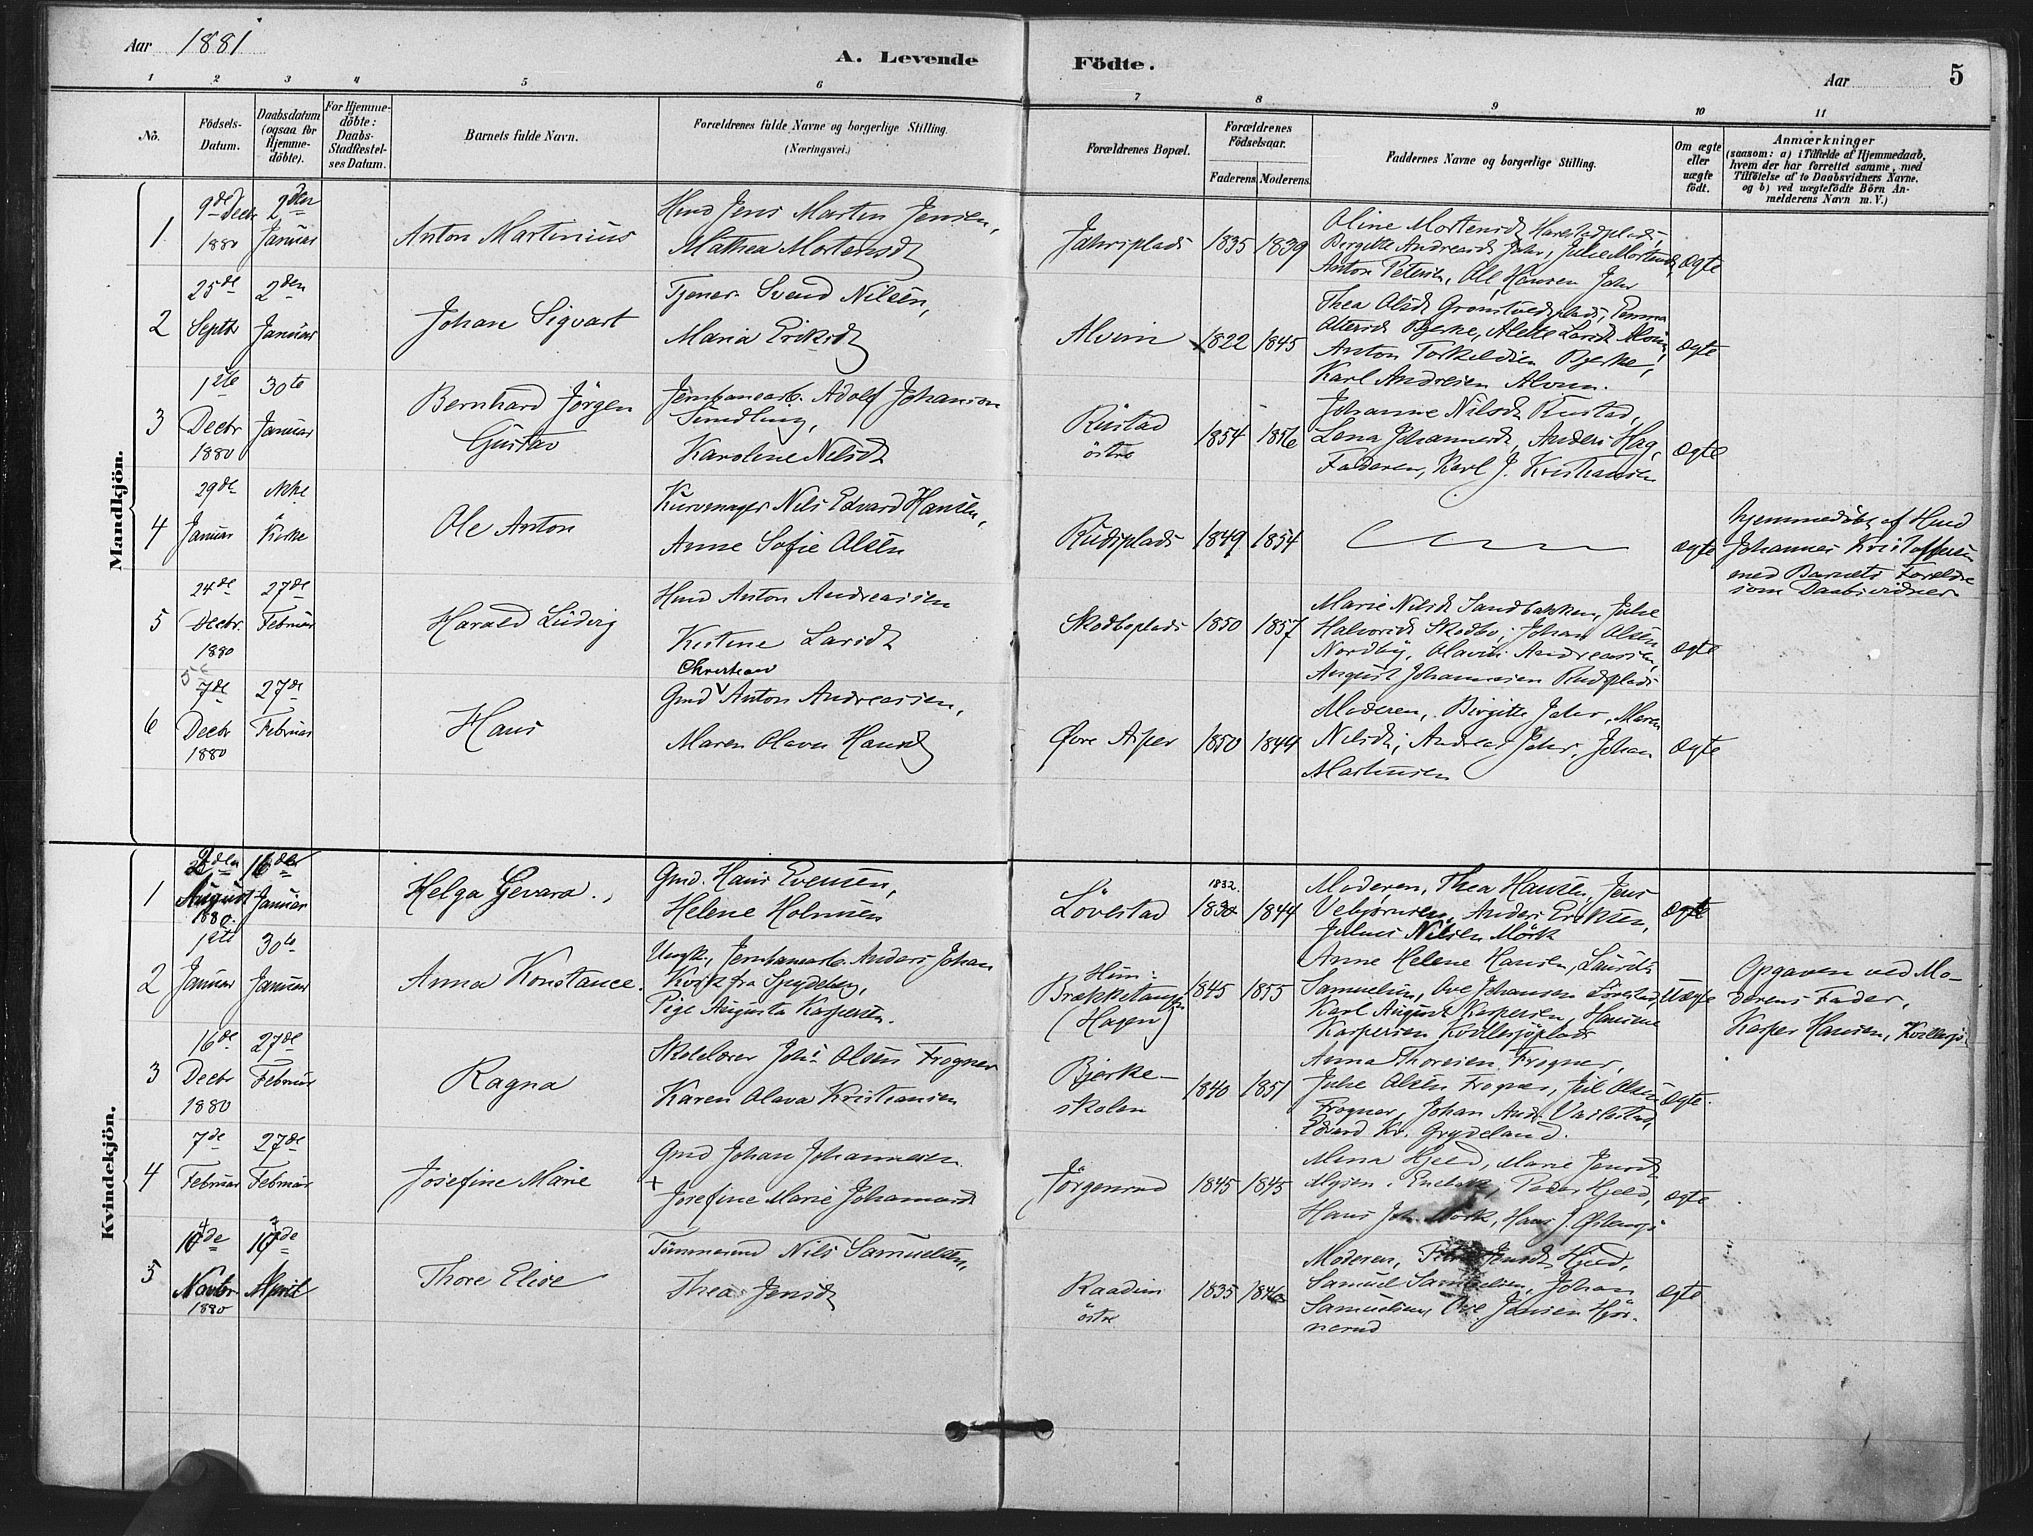 Aar 1881
A. Levende Födte.
Aar
5
1 2 3 4 5 6 7 8 9 10 11
No.
Födsels-
Datum.
Daabsdatum
(ogsaa for
Hjemme-
döbte).
For Hjemme-
döbte:
Daabs-
Stadfestel-
ses Datum.
Barnets fulde Navn.
Forældrenes fulde Navne og borgerlige Stilling.
(Næringsvei.)
Forældrenes Bopæl.
Forældrenes
Födselsaar.
Faderens. Moderens.
Faddernes Navne og borgerlige Stilling.
Om ægte
eller
uægte
födt.
Anmærkninger
(saasom: a) i Tilfælde af Hjemmedaab,
hvem der har forrettet samme, med
Tilföielse af to Daabsvidners Navne.
og b) ved uægtefödte Börn An-
melderens Navn m. V.)
Mandkjön.
1
9de Decbr
1880
2den
Januar
Anton Martinius
Hmd Jens Martin Jensen,
Mathea Mortensdt
Jahrsplads
1835 1839
Oline Mortensdt Harestadplads,
Birgitte Andreasdt Jahr, Julie Mortensdt,
Anton Petersen, Ole Hansen Jahr
Ægte
2
25de
Septbr
2den
Januar
Johan Sigvart
Tjener Svend Nilsen,
Maria Eriksdt
Alvim
1822 1845
Thea Olsdt Grønlvedplads, Emma
Bjerke, Alette Larsdt Alvim,
Anton Torkeldsen Bjerke,
Karl Andresen Alvim.
Ægte
3
1ste
Decbr
1880
30te
Januar
Bernhard Jörgen
Gustav
Jernbanearb. Adolf Johanson
Smedling,
Karoline Nilsdt
Rustad
östre
1854 1856
Johanne Nilsdt Rustad,
Lena Johannesdt, Anders Hag,
Faderen, Karl J. Kristiansen
Ægte
4
29de
Januar
ikke
Kirke
Ole Anton
Kurvmager Nils Edvard Hansen,
Anne Sofie Olsen
Rudsplads
1849 1854
Ægte
hjemmedøbt af Hmd
Johannes Kristoffersen
med Barnets Forældre
som Daabsvidner
5
24de
Decbr
1880
27de
Februar
Harald Ludvig
Hmd Anton Andreassen
Kristine Larsdt
Skodboplads
1850 1857
Marie Nilsdt Sandbakken, Julie
Halvorsdt Skodbo, Johan Olsen
Nordby, Olavus Andreassen,
August Johannesen Rudsplads
Ægte
6
7de
Decbr
1880
27de
Februar
Hans
Christian
Gmd Anton Andreassen,
Maren Olava Hansdt
Øvre Asper
1850 1844
Moderen, Birgitte Jahr, Maren
Nilsdt, Andreas Jahr, Johan
Martinsen
Ægte
Kvindekjön.
1
August
1880
16de
Januar
Helga Gevara.
Gmd. Hans Evensen,
Helene Holmsen
Lövestad
1832
1844
Moderen, Thea Hansen, Jens
Vebjørnsen, Anders Eriksen,
Julius Nilsen Mørk
Ægte
2
1ste
Januar
30te
Januar
Anna Konstance.
Ungk., Jernbanearb. Anders Johan
Kvik fra Spydeberg,
Pige Augusta Kaspersen.
Brækketangen
(Hagen)
1845 1855
Anne Helene Hansen, Laurits
Samuelsen, Ove Johansen Lövestad,
Karl August Kaspersen, Hansine
Kaspersen Kollesjöplads
Uægte
Opgaven ved Mo-
derens Fader,
Kasper Hansen, Kollesjö
3
16de
Decbr
1880
27de
Februar
Ragna
Skolelærer Johs Olsen Frogner
Karen Olava Kristiansen
Bjerke-
skolen
1840 1851
Anna Thoresen Frogner,
Julie Olsen Frogner, Jul. Olsen
Frogner, Johan And. Varlestad,
Edvard Kr. Grydeland.
Ægte.
4
7de
Februar
27de
Februar
Josefine Marie
Gmd Johan Johannesen
+ Josefine Marie Johannesdt
Jörgensrud
1845 1845
Mina Hjeld, Marie Jensdt
Peder Hjeld,
Hans Joh. Mörk, Hans J. Østensjö
Ægte
5
Novbr
1880
April
Thore Elise
Tömmermd Nils Samuelsen,
Thea Jensdt
Raadim
östre
1835 1846
Moderen, Jensdt Hjeld,
Samuel Samuelsen, Johan
Samuelsen, Ove Jansen Hjör-
nerud
Ægte